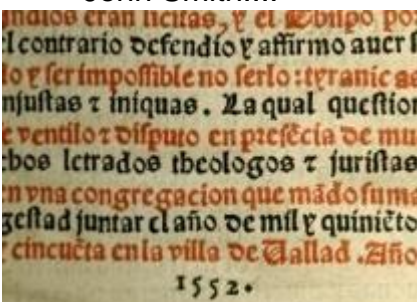 John Smith...
ndios eran licitas, y el Obispo po
l contrario defendio y affirmo auer s
to y ser impossible no serlo: tyranicas
njustas ⁊ iniquas. La qual questio
e ventilo ⁊ disputo en presẽcia de mu
chos letrados theologos ⁊ juristas
n vna congregacion que mãdo su ma
gestad juntar el año de mil y quiniẽto
y cincuẽta en la villa de Vallad. Año
1552.